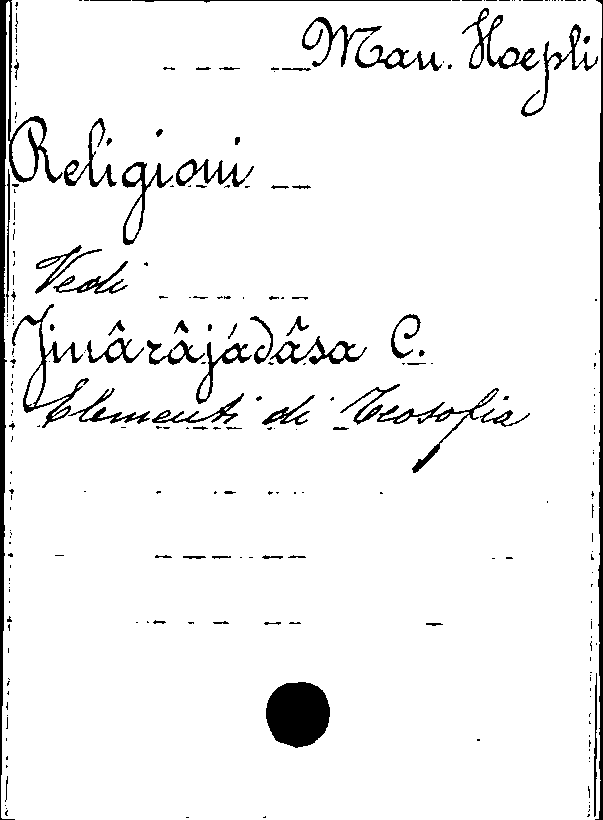 Man. Hoepli
Religioni
Vedi
Jinârâjádâsa C.
Elementi di Teosofia